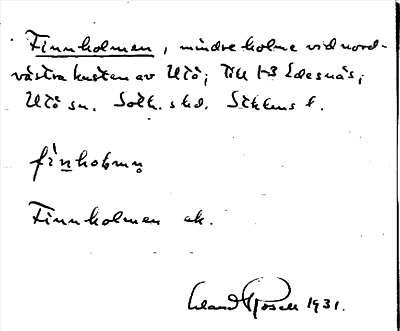 Finnholmen, mindre holme vid nord-
västra kusten av Utö; Till 1-3 Edesnäs;
Utö sn. Sotk. skd. Sthlms l.
finholmn
Finnholmen ek.
Erland Rosell 1931.